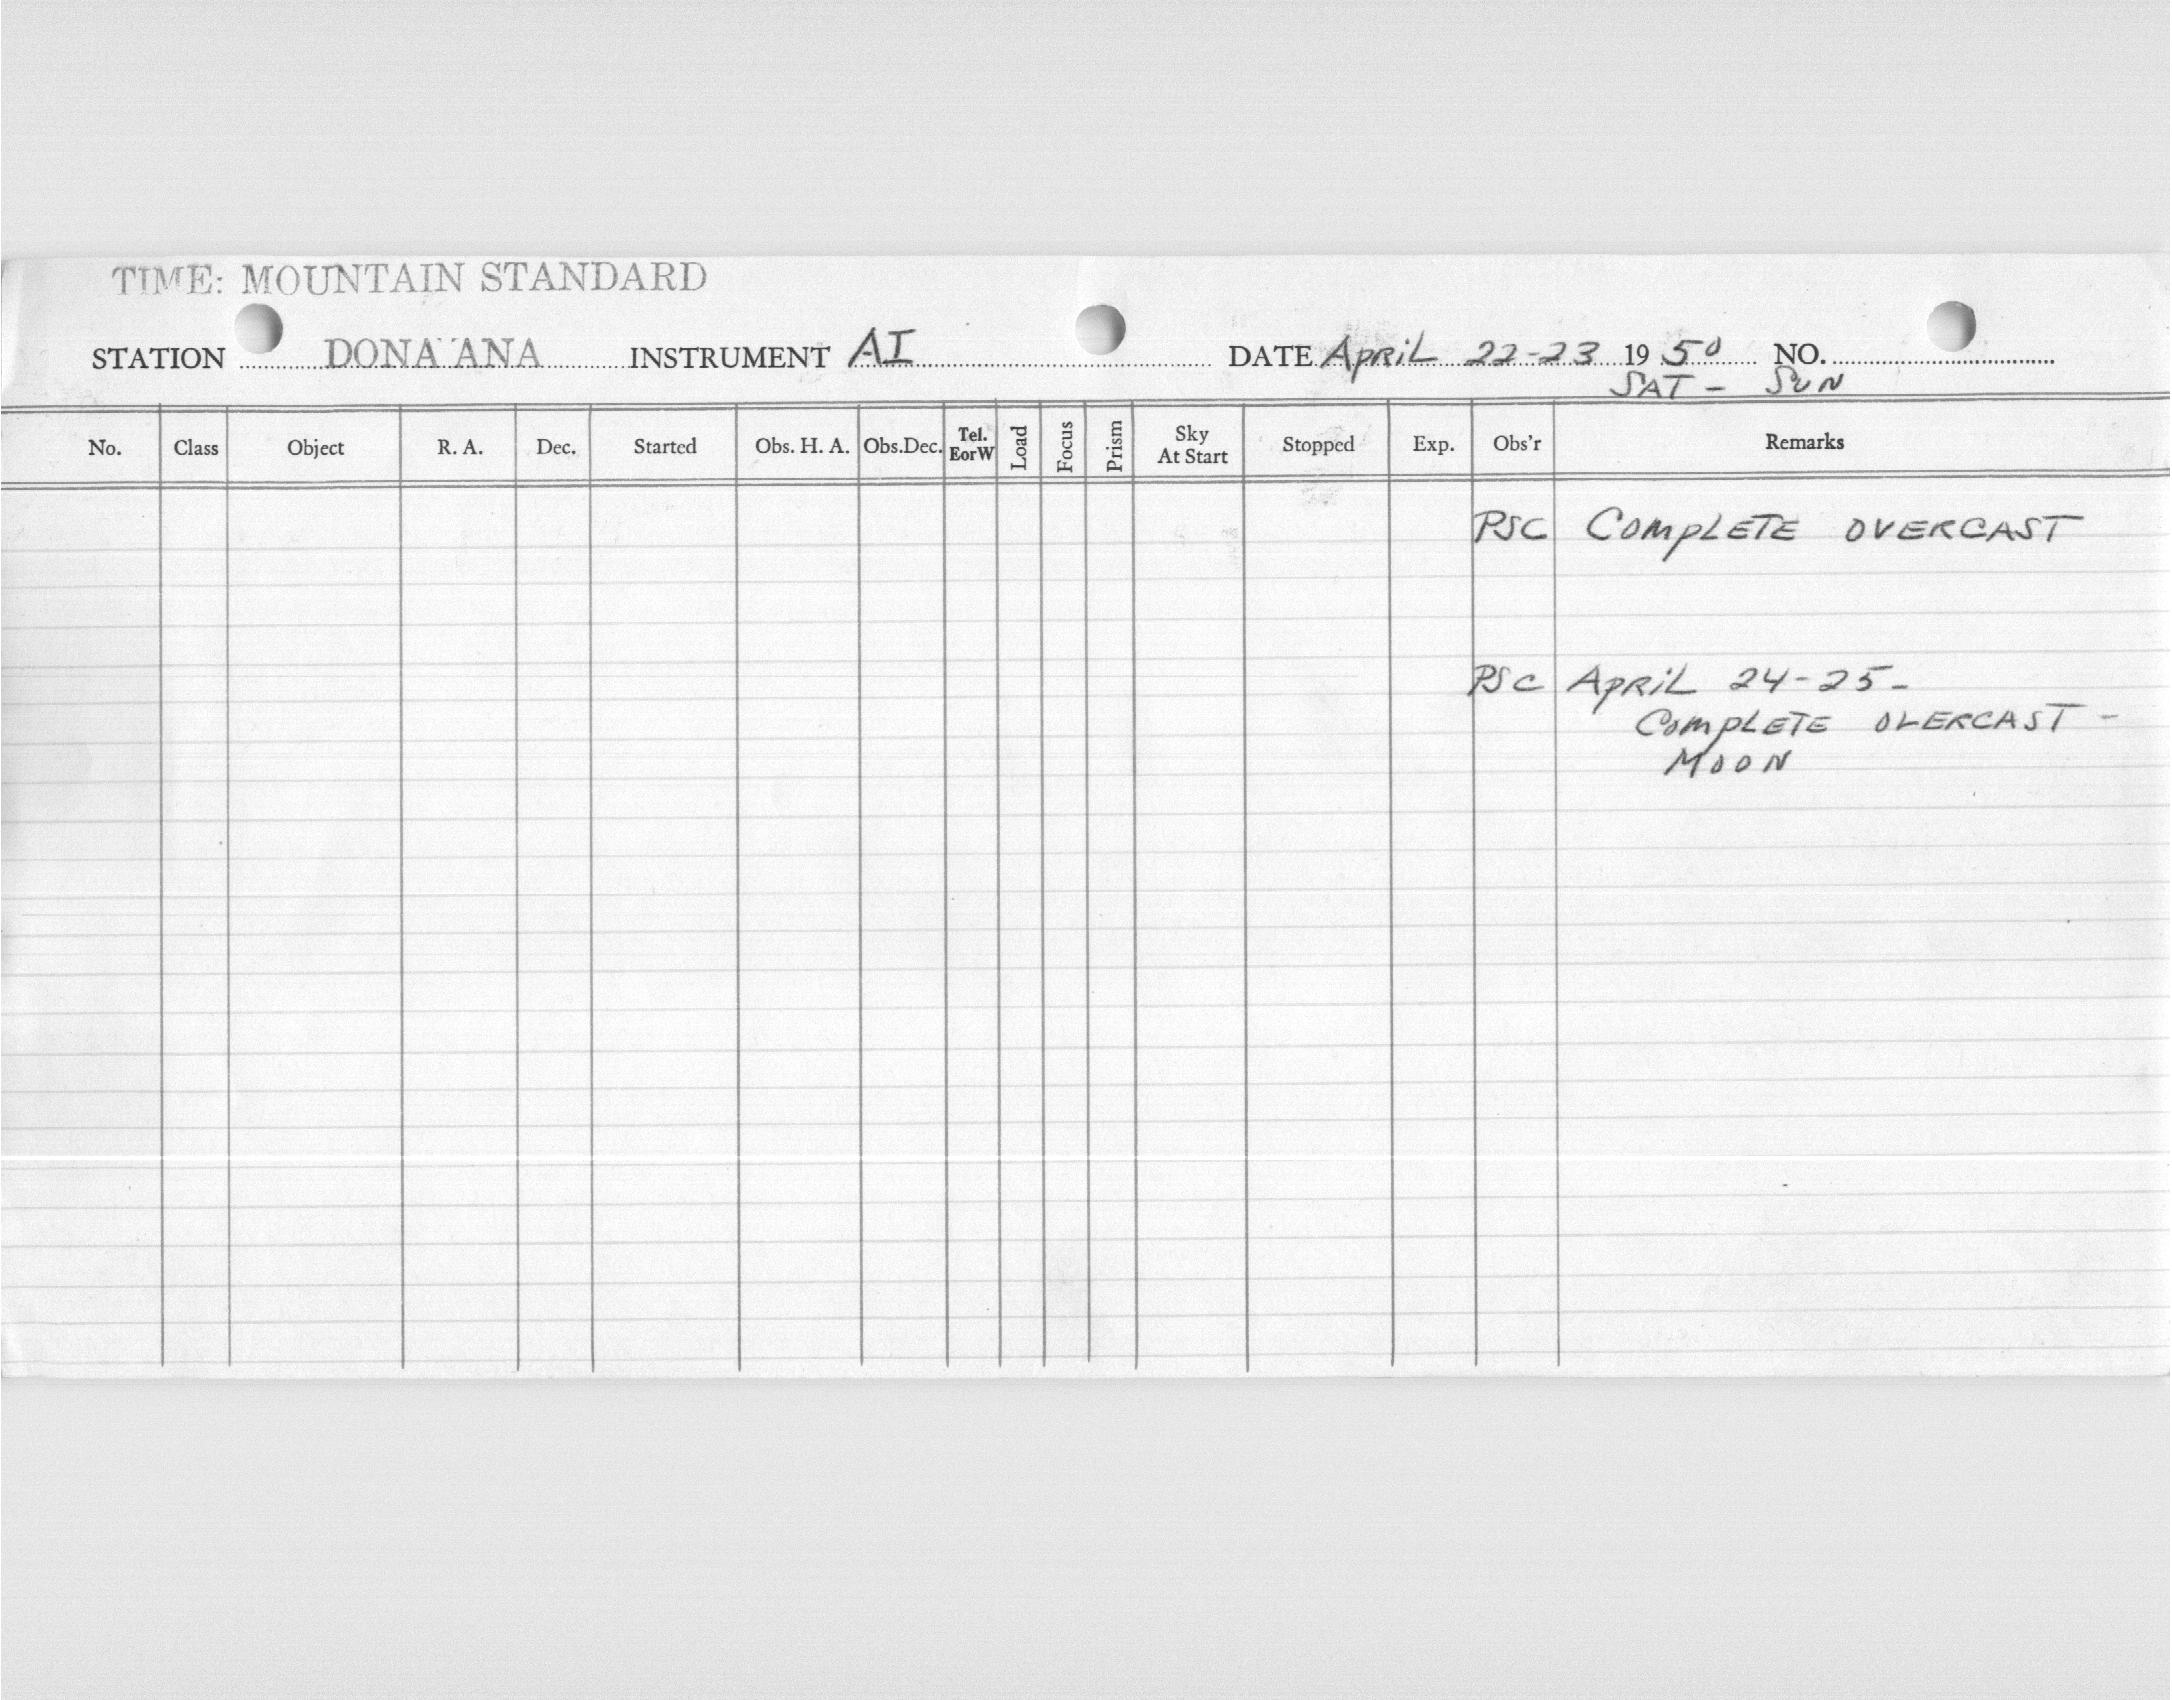 TIME: MOUNTAIN STANDARD
STATION DONA ANA INSTRUMENT AI DATE APRiL 22-23 19 50 NO.
SAT - SUN
No. Class Object R. A. Dec. Started Obs. H. A. Obs.Dec. Tel. EorW Load Focus Prism Sky At Start Stopped Exp. Obs'r Remarks
PSC COMPLETE OVERCAST
PSC APRiL 24-25-
COMPLETE OVERCAST -
MOON